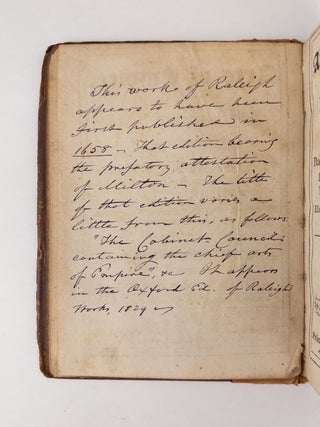 This work of Raleigh
appears to have been
first published in
1658 – That edition bearing
the prefatory attestation
of Milton – The title
of that edition varies a
little from this, as follows
"The Cabinet Council:
containing the chief arts
of Empire", &c It appears
in the Oxford Ed. of Raleigh's
Works 1829
A